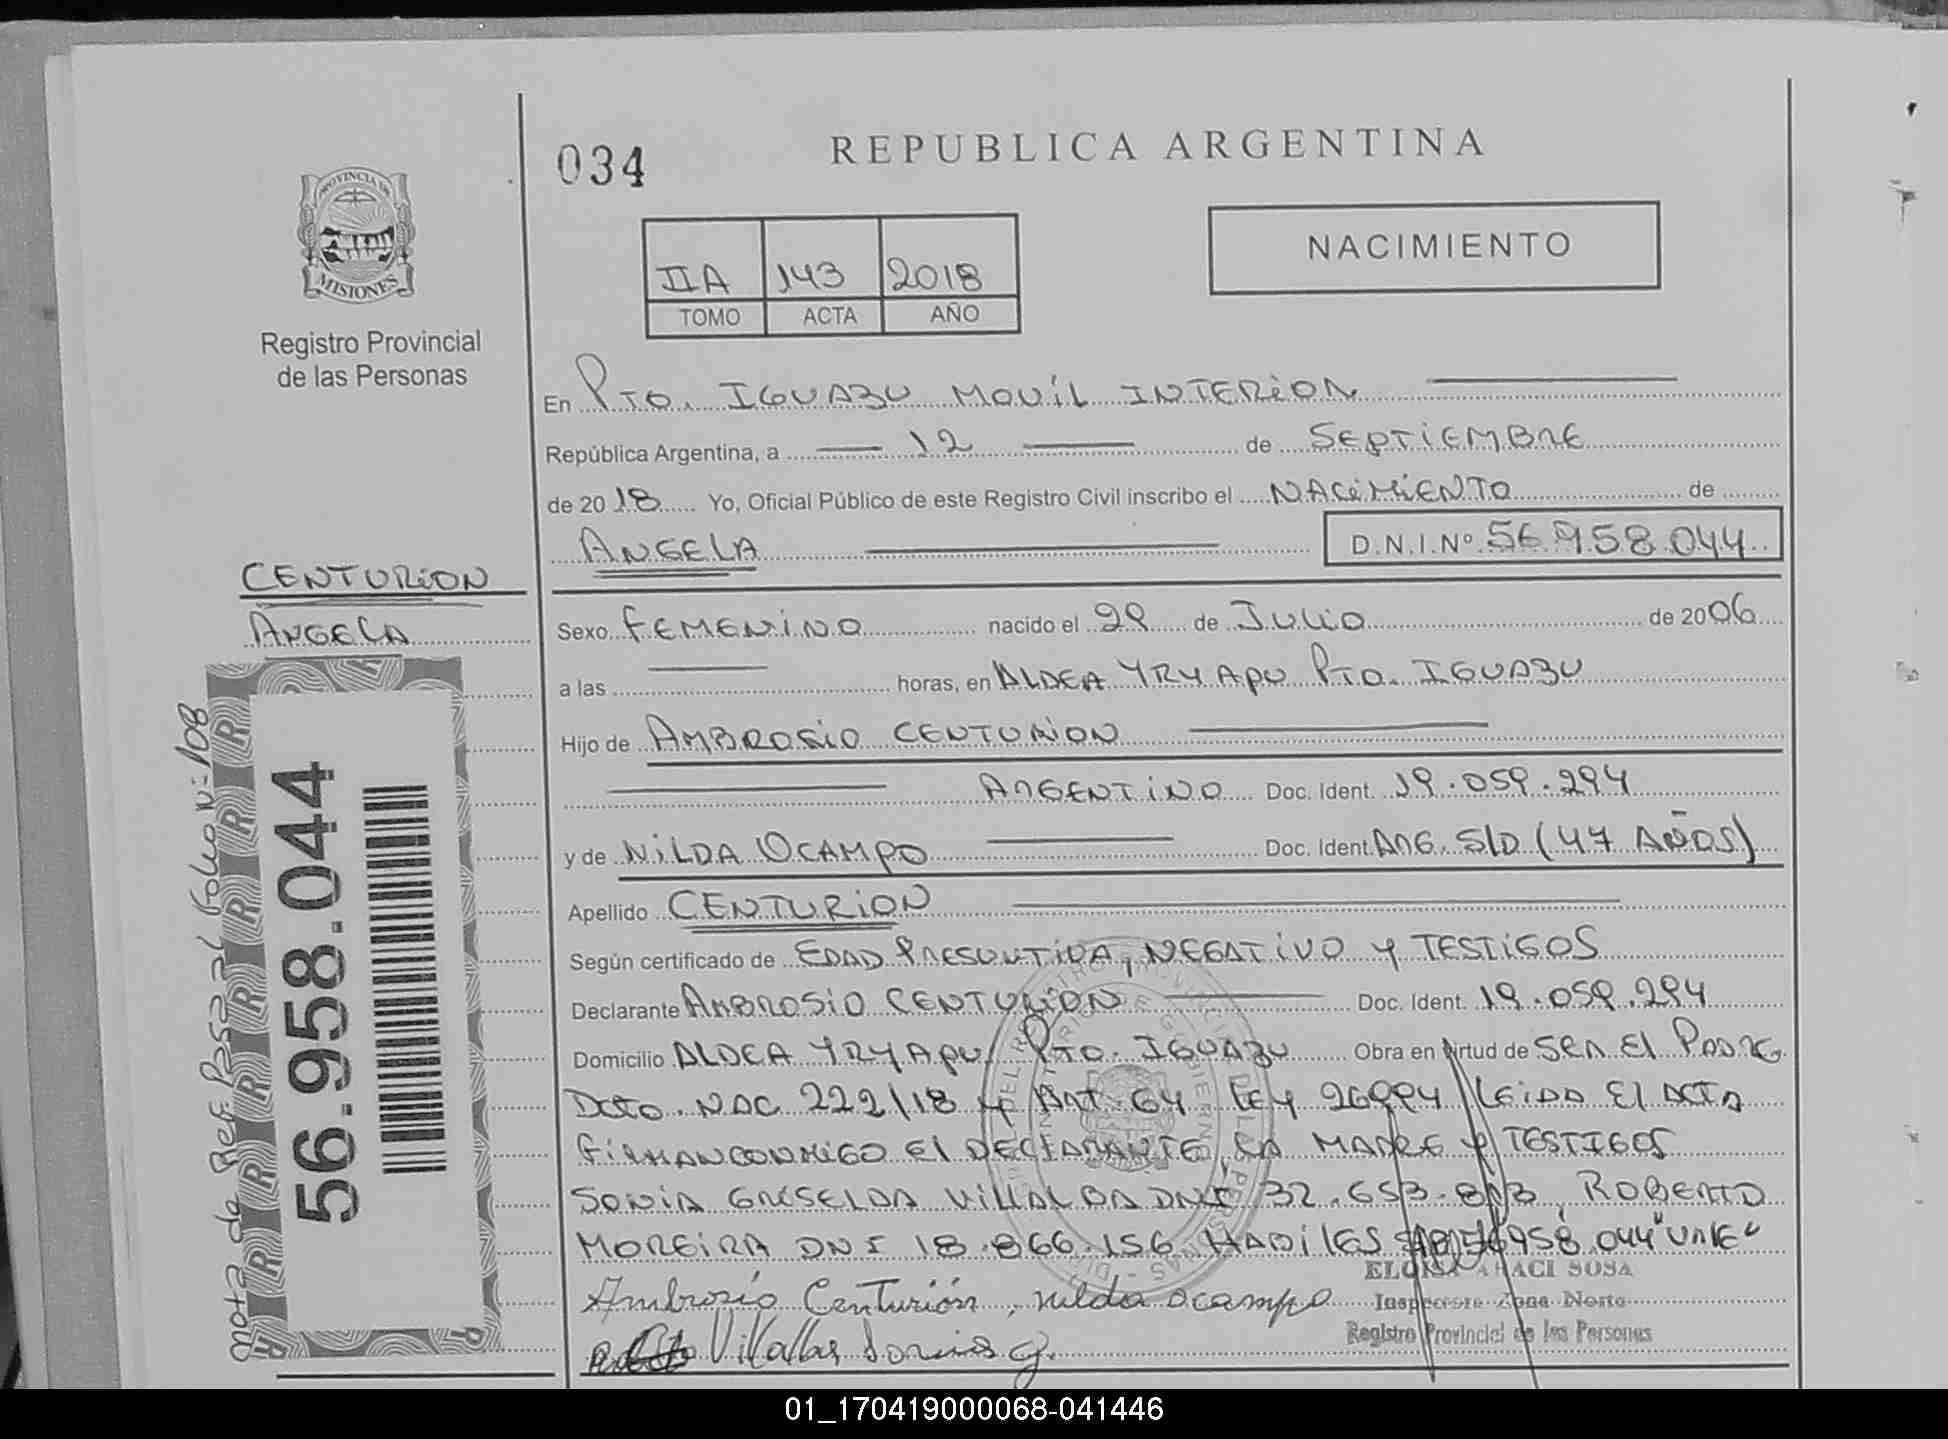 034
REPUBLICA ARGENTINA
PROVINCIA DE
MISIONES
Registro Provincial
de las Personas
IIA 143 2018
TOMO ACTA AÑO
NACIMIENTO
En PTO. IGUAZU MOVIL INTERIOR
República Argentina, a 12 de SEPTIEMBRE
de 2018 Yo, Oficial Público de este Registro Civil inscribo el NACIMIENTO de
ANGELA D.N.I.Nº 56.958.044
CENTURION
ANGELA
Sexo FEMENINO nacido el 29 de JULIO de 2006
a las horas, en ALDEA YRYAPU PTO. IGUAZU
Hijo de AMBROSIO CENTURION
ARGENTINO Doc. Ident. 19.059.294
y de NILDA OCAMPO Doc. Ident. ARG. S/D (47 AÑOS)
Apellido CENTURION
Según certificado de EDAD PRESUNTIVA, NEGATIVO Y TESTIGOS
Declarante AMBROSIO CENTURION Doc. Ident. 19.059.294
Domicilio ALDEA YRYAPU PTO. IGUAZU Obra en virtud de SER El PADRE
Dcto. NAC 222/18 y ART 64 LEY 26994 LEIDA El ACTA
FIRMAN CONMIGO El DECLARANTE, LA MADRE y TESTIGOS
SONIA GRISELDA VILLALBA DNI 32.653.803, ROBERTO
MOREIRA DNI 18.866.156 HABILES 56958.044 "VALE"
Ambrosio Centurión, nilda ocampo
Villalba Sonia g.
ELOISA ARACI SOSA
Inspectora Zona Norte
Registro Provincial de las Personas
nota de Ref. Pasa al Folio Nº 108
56.958.044
01_170419000068-041446